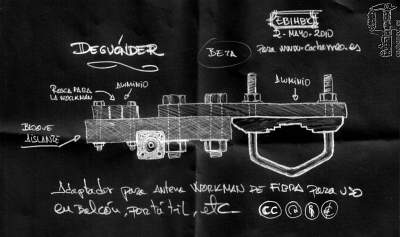 DEGUÓNDER
BETA
EB1HBK
2-MAYO-2010
Para www.cacharreo.es
ROSCA PARA
LA WORKMAN
ALUMINIO
ALUMINIO
BLOQUE
AISLANTE
Adaptador para antena WORKMAN DE FIBRA PARA USO
en Balcón, portátil, etc